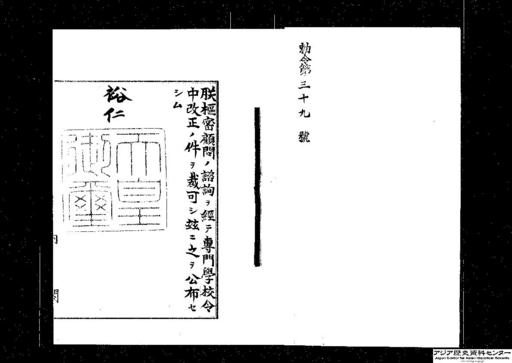 勅令第三十九號
朕樞密顧問ノ諮詢ヲ經テ專門學校令
中改正ノ件ヲ裁可シ玆ニ之ヲ公布セ
シム
裕仁
天皇御璽
内
閣
アジア歴史資料センター
Japan Center for Asian Historical Records